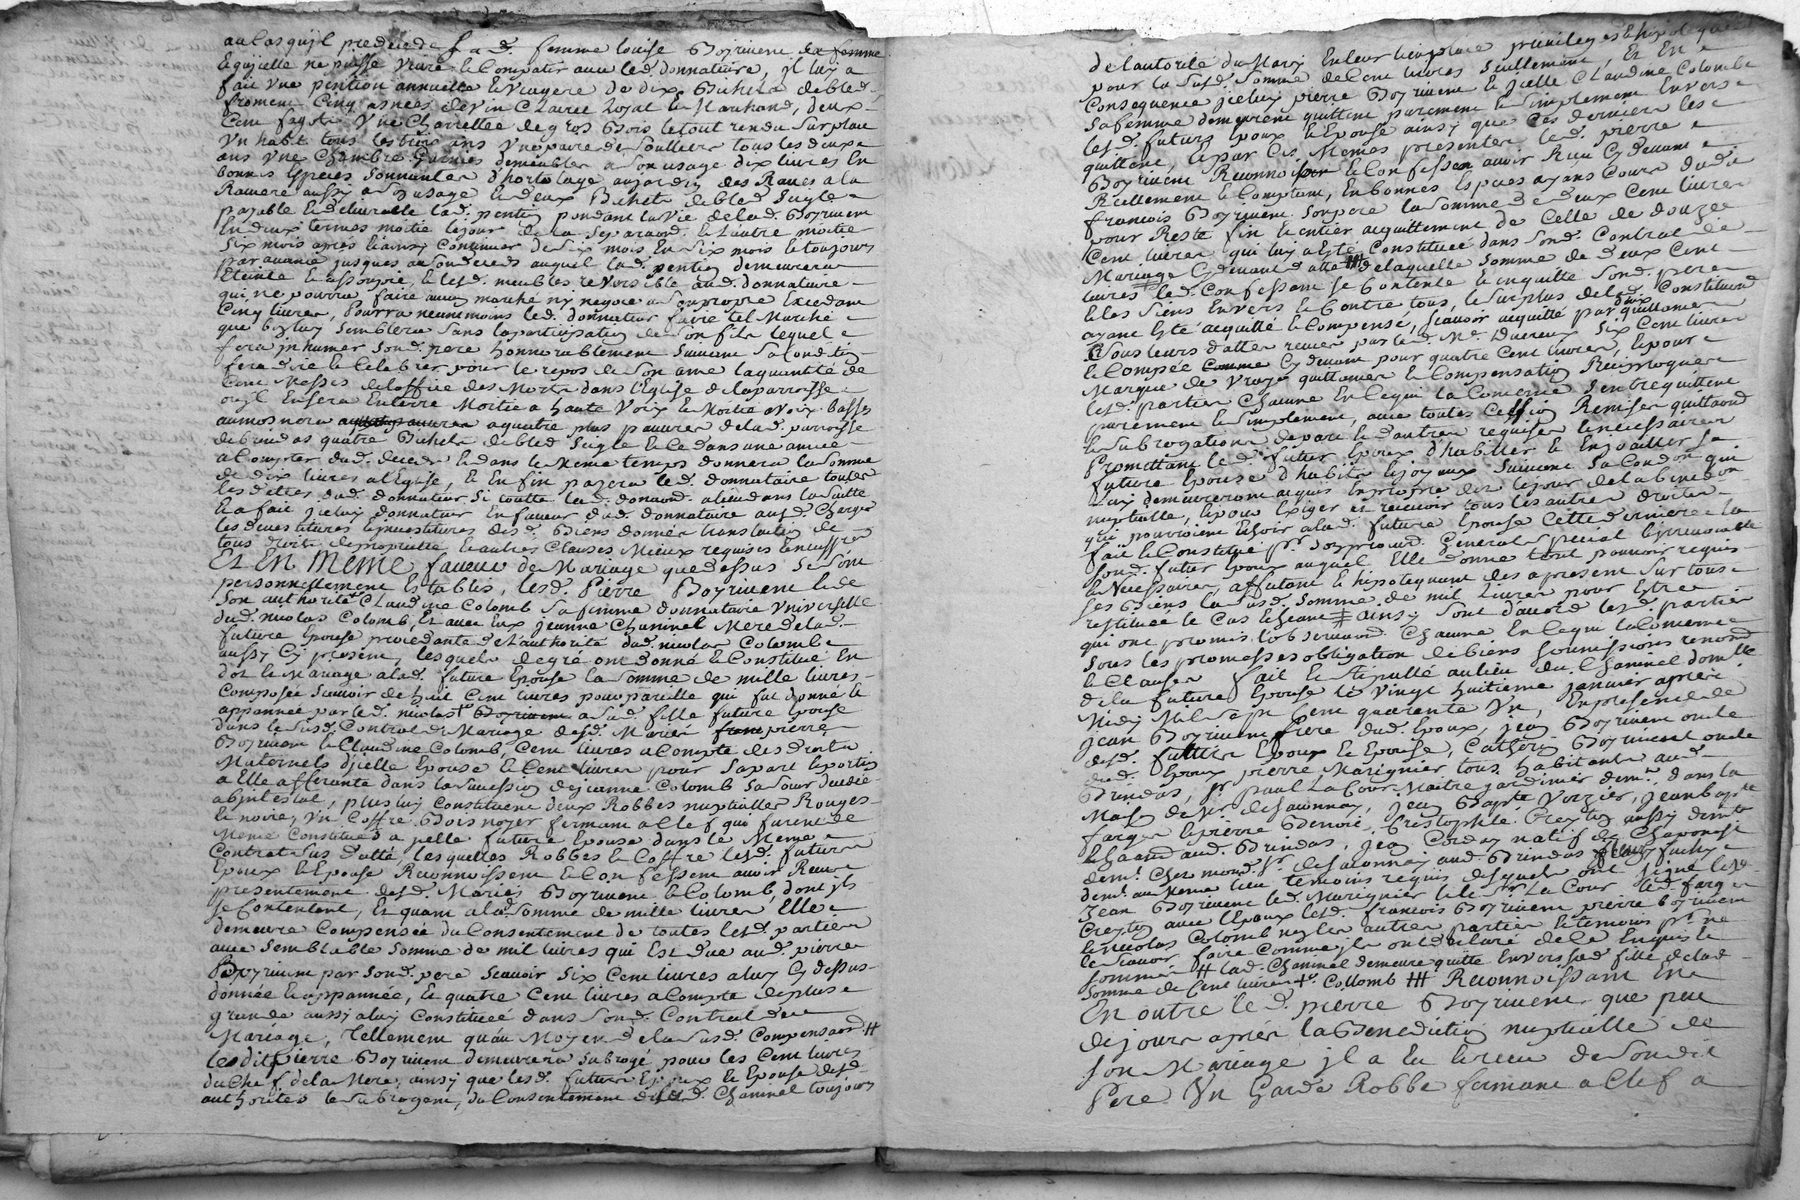 au cas qu'jl predecede lad. femme louise Boyriuent sa femme
& qu'elle ne puisse viure & Compatir auec led. donnataire, jl luy a
fait vne pention annuelle & viagere de dix Bichets de bled
froment Cinq asnées de vin Clairet loyal & Marchand, deux
Cent fagots vne Charrettée de gros Bois le tout rendu sur place
vn habit tous les trois ans vne paire de soulliers tous les deux
ans vne Chambre garnies de meubles a son usage dix liures En
bonnes Especes sonnantes d'hortolage au jardin des Raues a la
Rauiere aussy a son usage & deux Bichets de bled seigle
payable & deliurable lad. pention pendant la vie de lad. Boyriuent
En deux termes moitie le jour de la separaon & l'autre moitie
six mois apres & ainsy Continuer de six mois En six mois & toujours
par auance jusques au son deceds auquel lad. pention demeurera
Eteinte & assoupie, & lesd. meubles reversible aud. donnataire
qui ne pourra faire aucun marché ny negoce a son propre Excedant
Cinq liures, Pourra neanmoins led. donnateur faire tel Marché
que bon luy semblera sans la participation de son fils lequel
fera jnhumer sond. pere honnorablement suiuant sa condition
fera dire & Celebrer pour le repos de son ame la quantité de
Cent Messes de l'office des Morts dans l'Eglise de la parroisse
ou jl En sera Enterré Moitie a haute voix & Moitie a voix basse
aumosnera a quatre plus pauures de lad. parroisse
de brindas quatre Bichets de bled seigle & ce dans une année
a Compter dud. deceds & dans le meme temps donnera la somme
de dix liures a l'Eglise, & En fin payera led. donnataire toutes
les dettes dud. donnateur si toutte lad. donaon. a lieu dans la suitte
& a fait jceluy donnateur En faueur dud. donnataire ausd. Charges
les deuestitures & jnuestitures desd. Biens donnés translation de
tous droits de proprieté & autres Clauses Mieux requises & necessres
Et En Meme faueur de Mariage que dessus se sont
personnellement Establies, lesd. Pierre Boyriuent & de
son authorité Claudine Colomb sa femme donnataire vniverselle
dud. nicolas Colomb, Et auec Eux jeanne Chaninel Mere de lad.
future Epouse procedante de l'authorité dud. nicolas Colomb
aussy Cy present, lesquels de gré ont donné & Constitué En
dot & Mariage a lad. future Epouse la somme de mille liures
Composée scauoir de huit Cent liures pour pareille qui fut donné &
appannée par led. nicolas Boyriuent a sad. fille future Epouse
dans le susd. Contrat de Mariage desd. Mariés pierre
Boyriuent & Claudine Colomb, Cent liures a Compte des droits
Maternels d'jcelle Epouse & Cent liures pour sa part & portion
a Elle afferante dans la succession de jeanne Colomb sa sœur decedée
abjntestat, plus luy Constituent deux Robbes nuptialles Rouges
& noire, vn Coffre Bois noyer fermant a Clef qui furent de
Meme Constitués a jcelle future Epouse dans le Meme
Contrat sus d'atté, lesquelles Robbes & Coffre lesd. futurs
Epoux & Epouse Reconnoissent & Confessent auoir Receu
presentement desd. Mariés Boyriuent & Colomb, dont jls
se Contentent, Et quant a lad. somme de mille liures Elle
demeure Compensée du Consentement de toutes lesd. parties
auec semblable somme de mil liures qui Est due aud. pierre
Boyriuent par sond. pere scauoir six Cent liures a luy Cy dessus
donnée & appannée, & quatre Cent liures a Compte de plus
grande aussy a luy Constitueé dans sond. Contrat de
Mariage, Tellement qu'au Moyen de la susd. Compensaon #
lesdit Pierre Boyriuent demeurera subrogé pour les Cent liures
du Chef de la Mere, ainsy que lesd. futurs Epoux & Epouse desd.
authorités le subrogent, du Consentement de lad. Chaninel toujours
de l'autorité du Mary En leur lieu place privileges & hipoteque
pour la susd. somme de Cent liures seullement, Et En
Consequence jceluy pierre Boyriuent & jcelle Claudine Colomb
sa femme demeurent quittent purement & simplement Envers
lesd. futurs Epoux & Epouse ainsy que Ces derniers les
quittent, & par Ces Memes presentes led. pierre
Boyriuent Reconnoit & Confesse avoir Receu Cy deuant
Reellement & Comptant, En bonnes Especes ayans Cours dudit
françois Boyriuent son pere la somme de deux Cent liures
pour Reste fin & entier acquittement de Celle de douze
Cent liures qui luy a Esté Constituée dans sond. Contrat de
Mariage Cy deuant d'atté # de laquelle somme de deux Cent
liures led. Confessant se Contente & en quitte sond. pere
& les siens Envers & Contre tous, le surplus desd. deux Constituons
ayant Esté acquitté & Compensé, scauoir acquitté par quittances
sous leurs d'attes receues par led. Me. Ducreux six Cent liures
& Compée Comme Cy deuant pour quatre Cent liures, & pour
Marque de vraye quittances & Compensation Reciproques
lesd. parties Chacune En Ce qui la Concerne s'entrequittent
purement & simplement, auec toutes Cession Remises quittaons
& subrogations de part & d'autres requises & necessaires
Promettant led. futur Epoux d'habiller & Enjoailler sa
future Epouse d'habits & joyaux suiuant sa Condon qui
luy demeureront acquis En propre des le jour de la benedon
nuptialle, & pour Exiger et receuoir tous les autres droits
qui pourroient Echoir a lad. future Epouse Cette derniere la
fait & Constitue pr. son procur. General special & jrreuocable
sond. futur Epoux auquel Elle donne tout pouuoir requis
& Necessaire affectant & hipotequant des a present sur tous
ses Biens la susd. somme de mil liures pour Estre
restituée le Cas Echeant # ainsy sont d'accord lesd. parties
qui ont promis l'observaon. Chacune En Ce qui la Concerne
sous les promesses obligation de biens soumissions renonon
& Clauses fait & stipullé au lieu du Chaninel domlle.
de la future Epouse le vingt huitieme janvier apres
Midy Mil sept Cent quarante vn, En presence de
jean Boyriuent frere dud. Epoux, jean Boyriuent oncle
desd. futurs Epoux & Epouse, Catherin Boyriuent oncle
dud. Epoux pierre Marignier tous habitants aud.
Brindas, sr. paul La Cour Maitre jardinier demt. dans la
Mason de Mr. de sauonnay, jean Bapte Vorzier, jean bapte
farges & pierre Benoit, Cristophle Creyton aussy demts.
Ehaand aud. Brindas, jean Cordon natif de Chaponost
demt. Chez mond. sr. de sauonnay aud. Brindas
demt. au Meme lieu temoins requis desquels ont signé lesd.
jean Boyriuent led. Marignier & le sr. La Cour led. farges
Creyton auec l'Epoux lesd. françois Boyriuent pierre boyriuent
& nicolas Colomb ny les autres parties & temoins pr. ne
le scauoir faire Comme jls ont declaré de ce Enquis &
sommés # lad. Chaninel demeure quitte Envers sad. fille de lad.
somme de Cent liures Collomb # Reconnoissant En
En outre led. pierre Boyriuent que peu
de jours apres la Benediction nuptialle de
son Mariage jl a Eu & receu de sondit
Pere Vn Garde Robbe fermant a Clef a